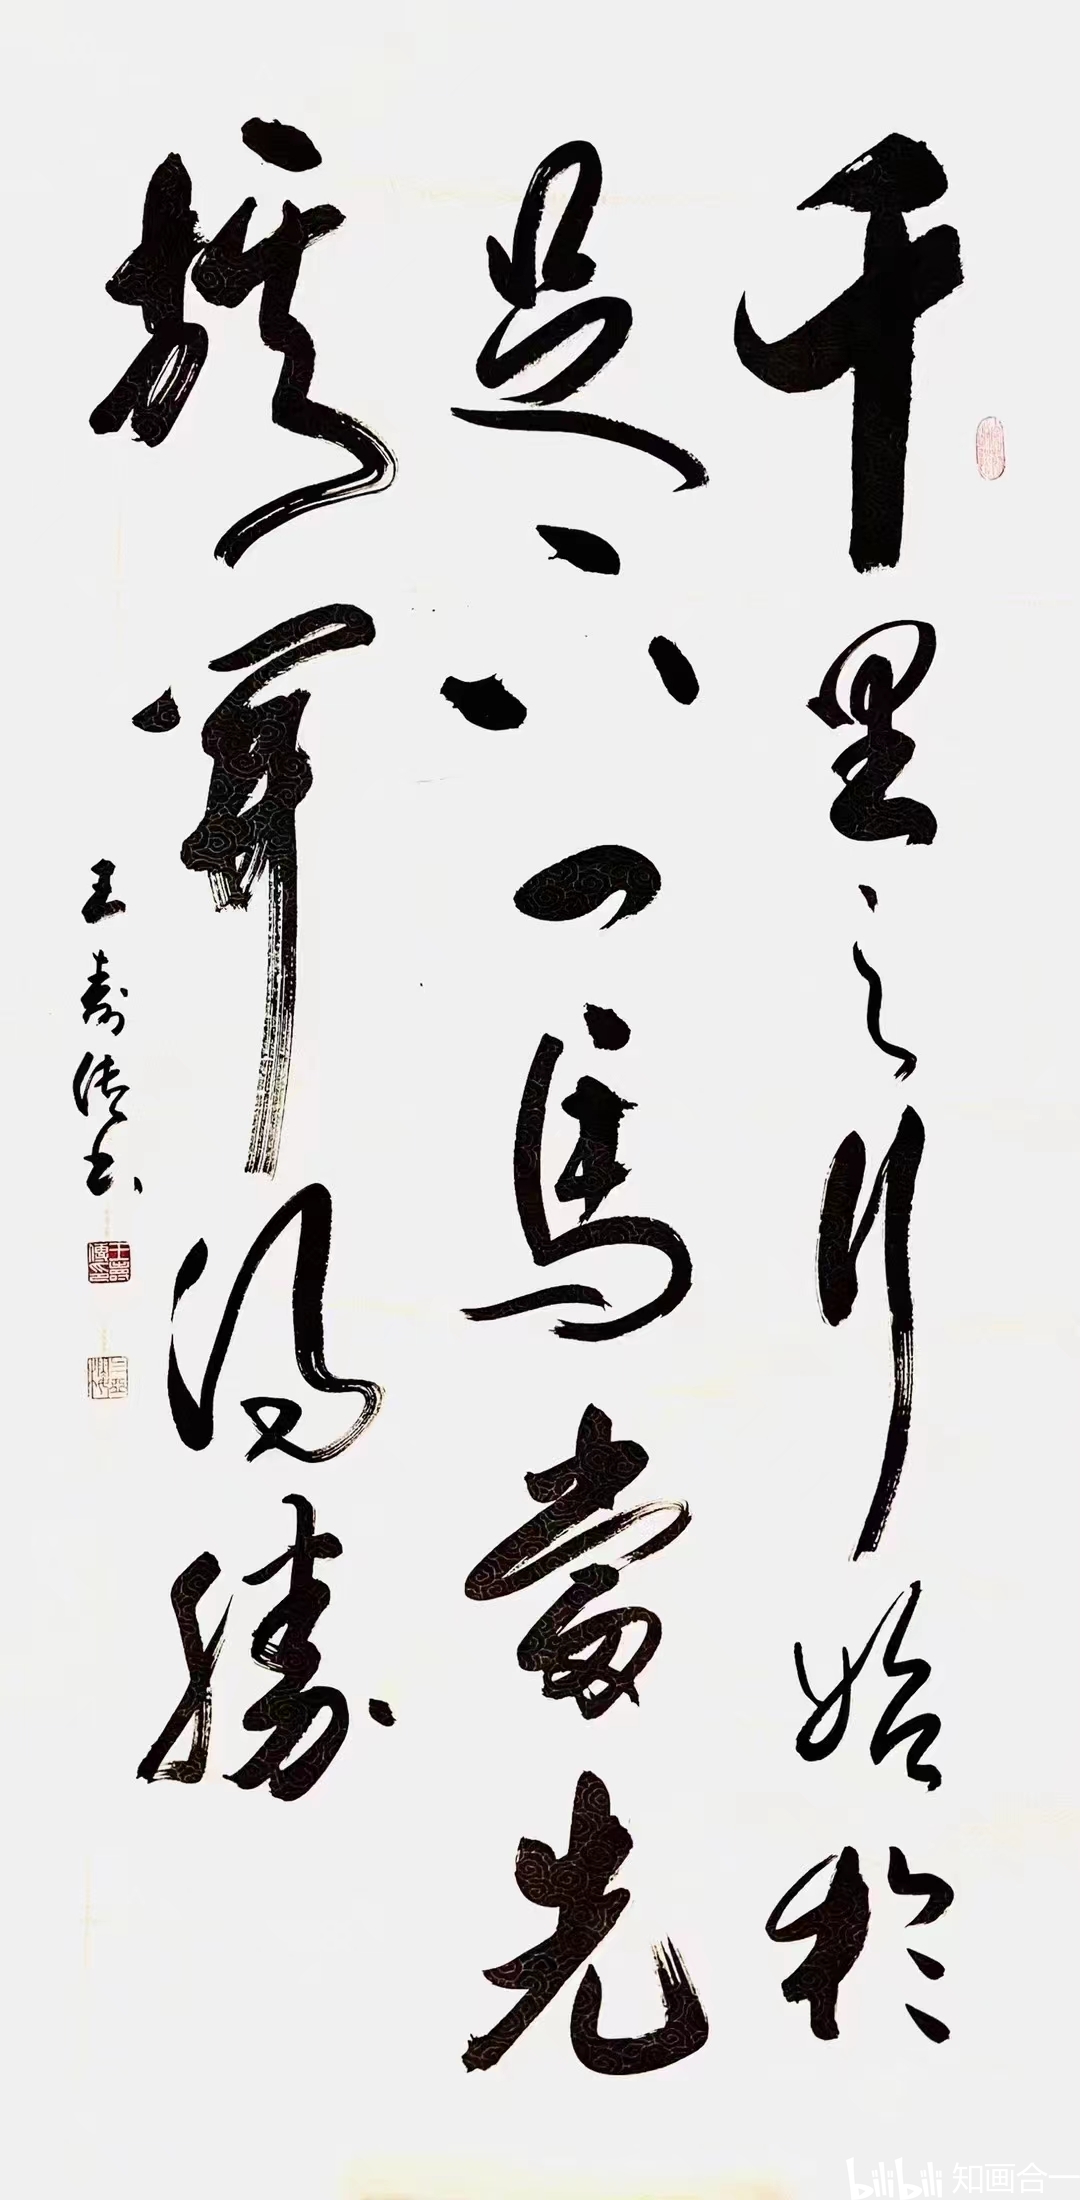 千里之行始於
足下一馬當先
旗開得勝
王寿传书
王壽傳印
bilibili 知画合一